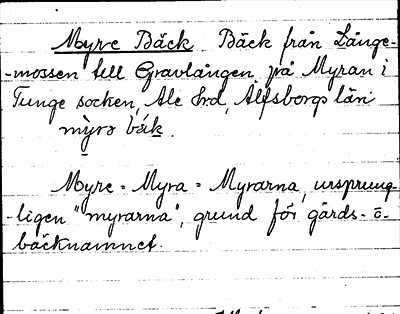 Myre Bäck Bäck från Långe-
-mossen till Gravlången på Myran i
Tunge socken, Ale Hrd, Älfsborgs län
myrə bäk.
Myre = Myra = Myrarna, ursprung-
-ligen "myrarna", grund för gårds- o
bäcknamnet.